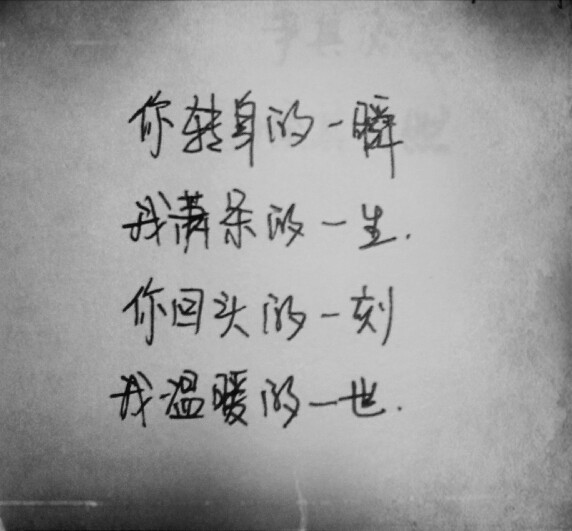 你转身的一瞬
我萧条的一生.
你回头的一刻
我温暖的一世.